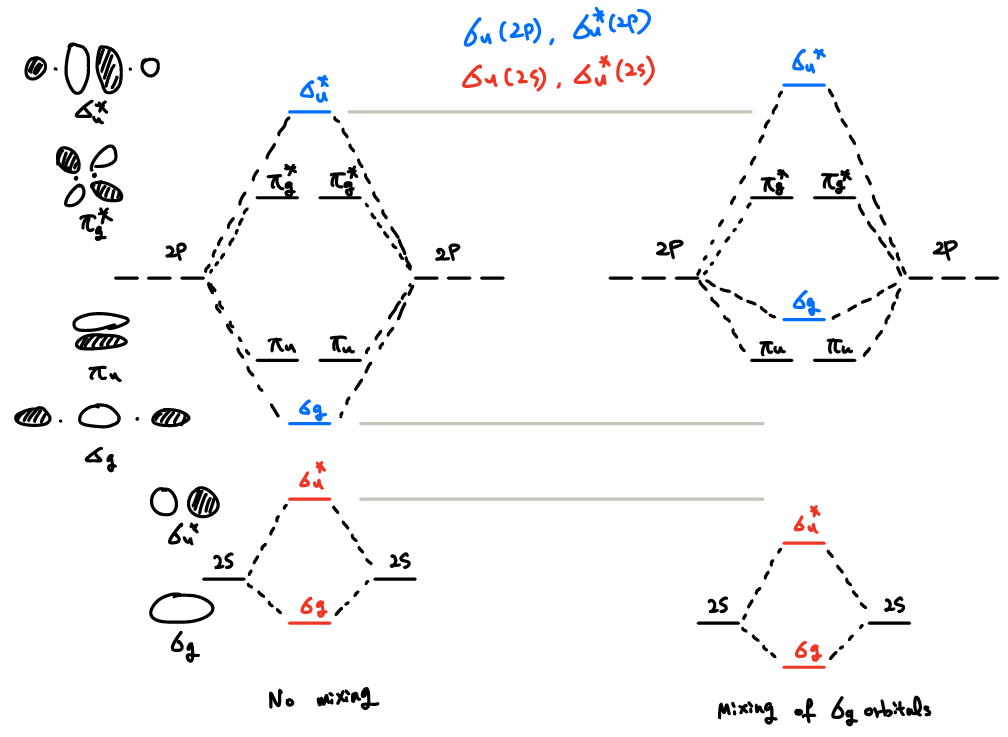 σu(2P), σu*(2P)
σu(2S), σu*(2S)
σu*
πg*
πu
σg
σu*
σg
σu*
πg* πg*
2P 2P
πu πu
σg
σu*
2S 2S
σg
No mixing
σu*
πg* πg*
2P 2P
σg
πu πu
σu*
2S 2S
σg
Mixing of σg orbitals